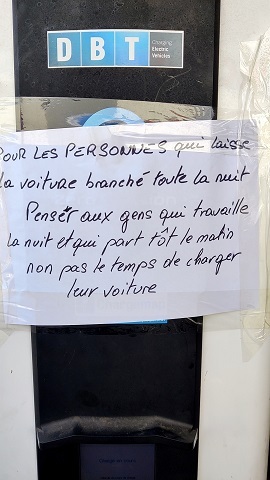 DBT Charging Electric Vehicles
POUR LES PERSONNES qui laisse
la voiture branché toute la nuit
Penser aux gens qui travaille
la nuit et qui part tôt le matin
non pas le temps de charger
leur voiture